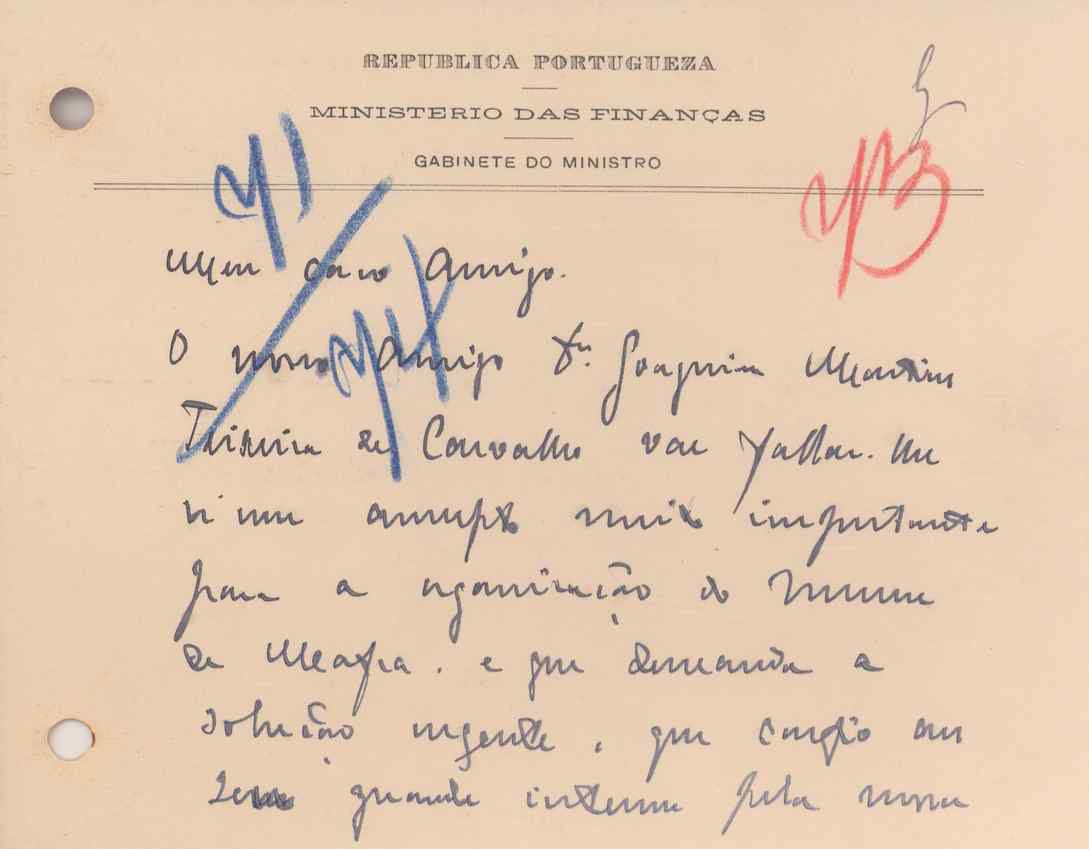 REPUBLICA PORTUGUEZA
MINISTERIO DAS FINANÇAS
GABINETE DO MINISTRO
Meu caro Amigo.
O nosso Amigo Dr. Joaquim Martins
Teixeira de Carvalho vae fallar-lhe
n'um assumpto muito importante
para a organisação do Museu
de Mafra, e que demanda a
solução urgente, que confio ao
seu grande interesse pela nossa